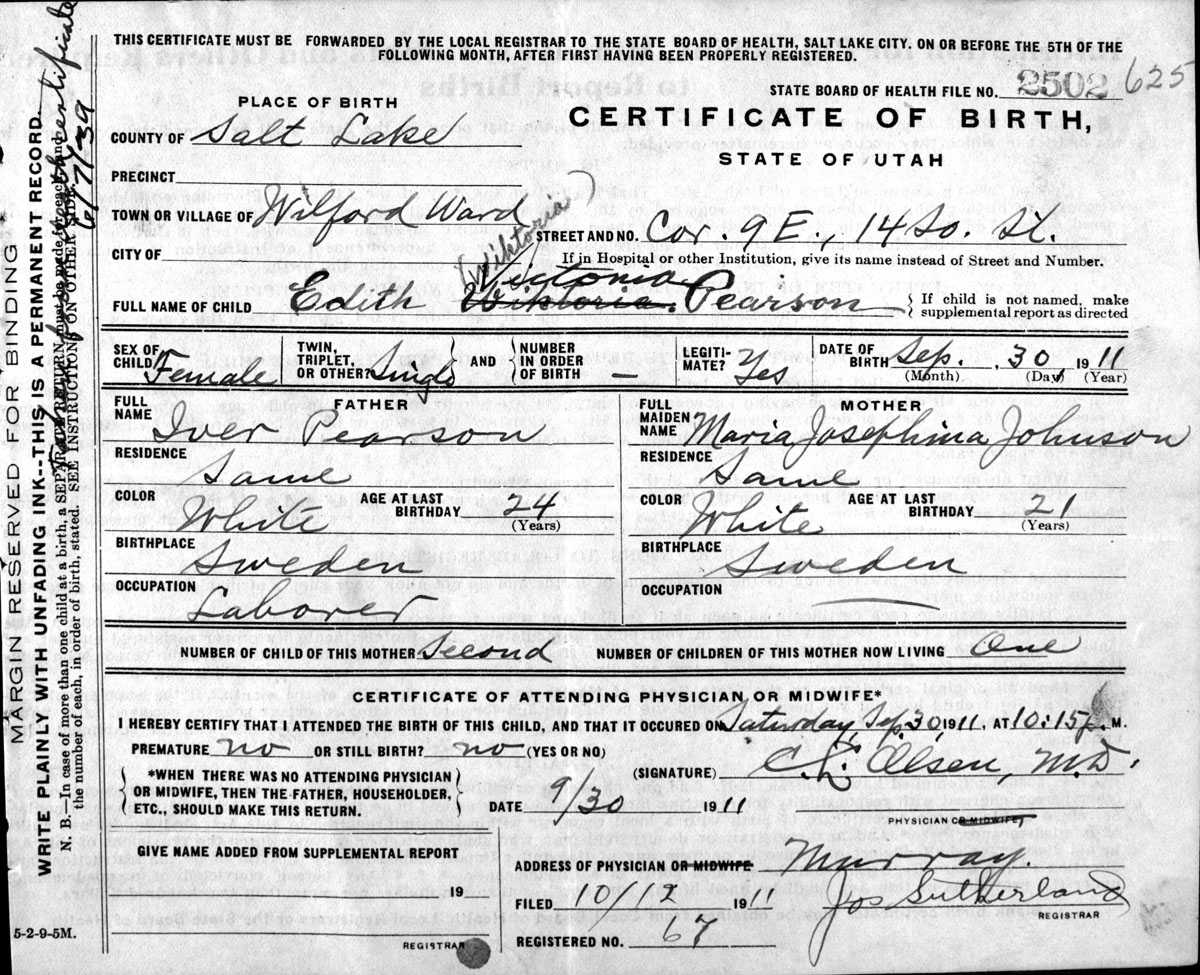 THIS CERTIFICATE MUST BE FORWARDED BY THE LOCAL REGISTRAR TO THE STATE BOARD OF HEALTH, SALT LAKE CITY. ON OR BEFORE THE 5TH OF THE
FOLLOWING MONTH, AFTER FIRST HAVING BEEN PROPERLY REGISTERED.
STATE BOARD OF HEALTH FILE NO. 2502 625
PLACE OF BIRTH
CERTIFICATE OF BIRTH,
STATE OF UTAH
COUNTY OF Salt Lake
PRECINCT
TOWN OR VILLAGE OF Wilford Ward
STREET AND NO. Cor. 9 E., 14 So. St.
CITY OF
If in Hospital or other Institution, give its name instead of Street and Number.
(Wiktoria)
Victoria
FULL NAME OF CHILD Edith Wiktoria Pearson
If child is not named, make
supplemental report as directed
SEX OF CHILD Female
TWIN, TRIPLET, OR OTHER? Single
AND
NUMBER IN ORDER OF BIRTH —
LEGITIMATE? Yes
DATE OF BIRTH Sep. 30 1911
(Month) (Day) (Year)
FATHER
FULL NAME Iver Pearson
RESIDENCE Same
COLOR White
AGE AT LAST BIRTHDAY 24
(Years)
BIRTHPLACE Sweden
OCCUPATION Laborer
MOTHER
FULL MAIDEN NAME Maria Josephina Johnson
RESIDENCE Same
COLOR White
AGE AT LAST BIRTHDAY 21
(Years)
BIRTHPLACE Sweden
OCCUPATION
NUMBER OF CHILD OF THIS MOTHER Second
NUMBER OF CHILDREN OF THIS MOTHER NOW LIVING One
CERTIFICATE OF ATTENDING PHYSICIAN OR MIDWIFE*
I HEREBY CERTIFY THAT I ATTENDED THE BIRTH OF THIS CHILD, AND THAT IT OCCURED ON Saturday, Sep. 30, 1911, AT 10:15 P. M.
PREMATURE no OR STILL BIRTH? no (YES OR NO)
*WHEN THERE WAS NO ATTENDING PHYSICIAN
OR MIDWIFE, THEN THE FATHER, HOUSEHOLDER,
ETC., SHOULD MAKE THIS RETURN.
(SIGNATURE) C. L. Olsen, M.D.
DATE 9/30 1911
PHYSICIAN OR MIDWIFE
GIVE NAME ADDED FROM SUPPLEMENTAL REPORT
19
REGISTRAR
ADDRESS OF PHYSICIAN OR MIDWIFE Murray.
FILED 10/12 1911
Jos Sutherland
REGISTRAR
REGISTERED NO. 67
5-2-9-5M.
MARGIN RESERVED FOR BINDING
WRITE PLAINLY WITH UNFADING INK--THIS IS A PERMANENT RECORD.
N. B.--In case of more than one child at a birth, a SEPARATE RETURN must be made for each and
the number of each, in order of birth, stated. SEE INSTRUCTIONS ON OTHER SIDE.
certificate
6/7/39